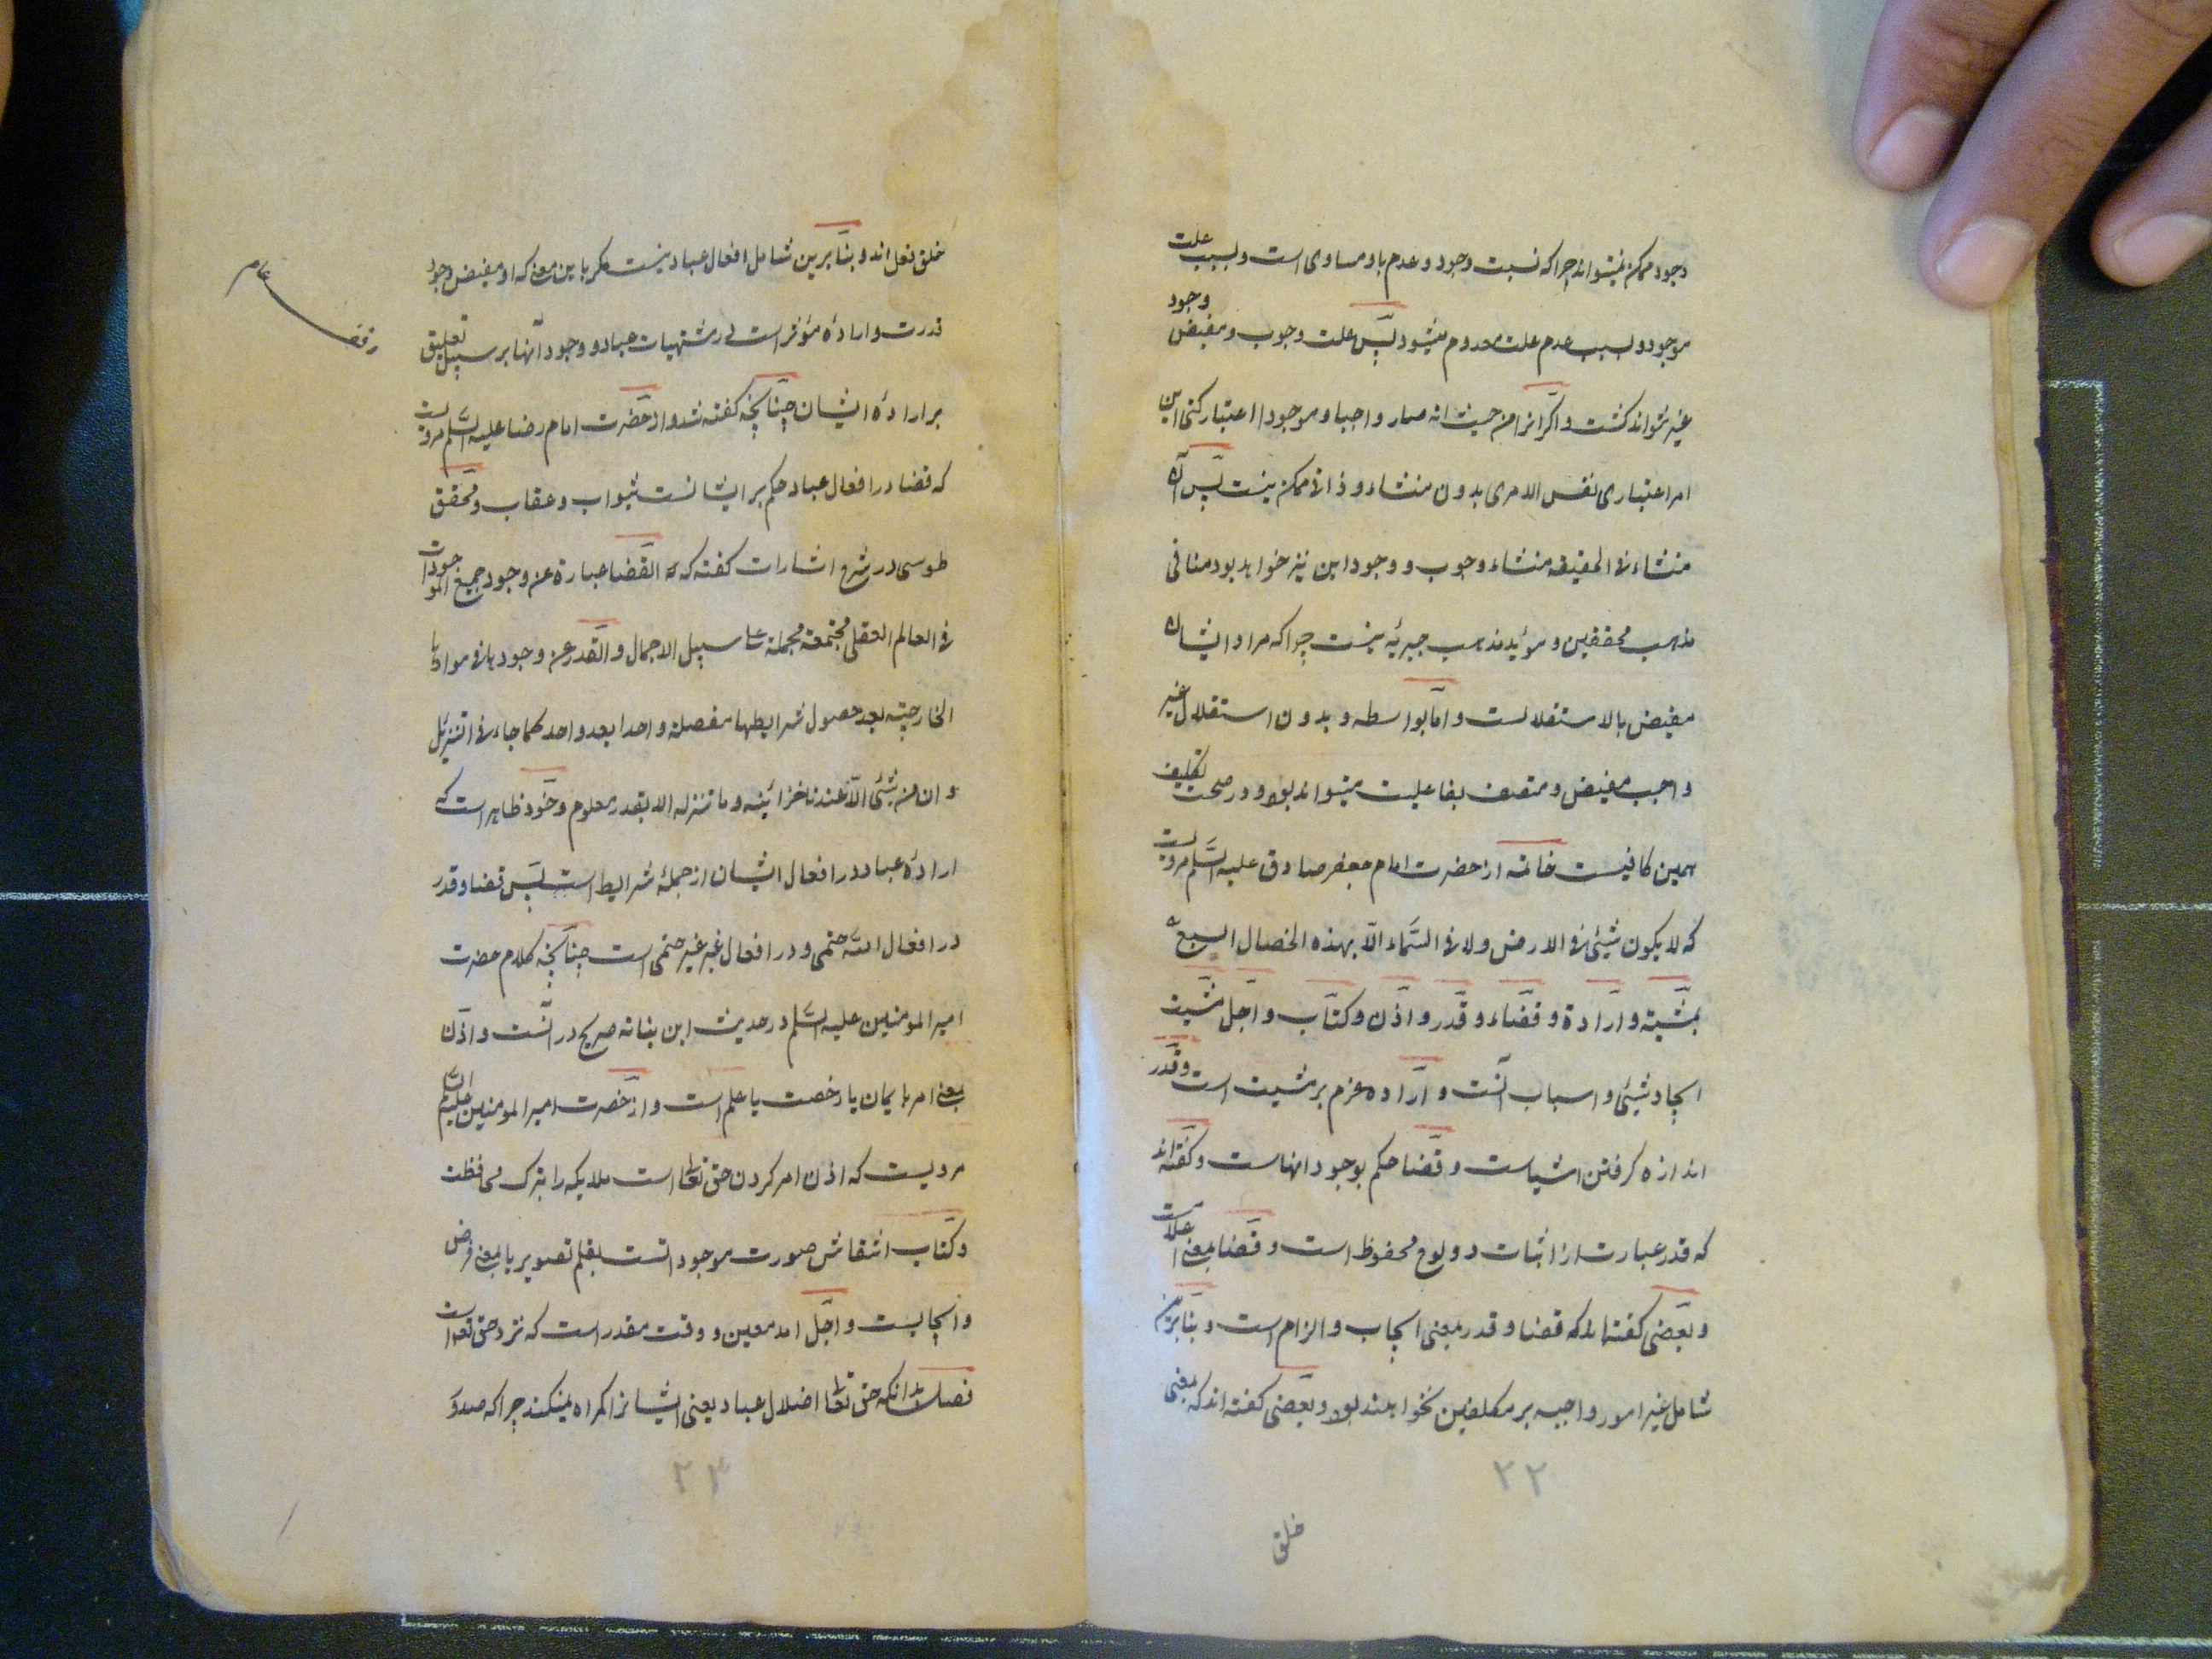 وجود ممکن نمیتواند چرا که نسبت وجود و عدم باو مساوی است و بسبب علت
موجود و بسبب عدم علت معدوم میشود پس علت وجوب و مفیض وجود
غیر نتواند کشت و اکر انرا من حیث انه صار واجبا و موجودا اعتبار کنی این
امر اعتباری نفس الامری بدون منشاء و ذاتی ممکن نیست پس آن
منشاء فی الحقیقه منشاء وجوب و وجود این نیز خواهد بود منافی
مذهب محققین و مؤید مذهب جبریّه نیست چرا که مراد ایشان
مفیض بالاستقلالست و امّا بواسطه و بدون استقلال غیر
واجب مفیض و متصف بفاعلیت میتواند بود و در صحت تکلیف
همین کافیست خاتمه از حضرت امام جعفر صادق علیه السّلم مرویست
که لا یکون شیئی فی الارض ولا فی السّماء الّا بهذه الخصال السبع
بمشیّته و ارادة و قضاء و قدر و اذن و کتاب و اجل مشیّت
ایجاد شیئی و اسباب آنست و اراده عزم بر مشیت است و قدر
اندازه کرفتن اشیاست و قضا حکم بوجود انهاست و کفته اند
که قدر عبارت از اثبات در لوح محفوظ است و قضا بمعنی اعلامست
و بعضی کفته اند که قضا و قدر بمعنی ایجاب و الزام است و بنا برین
شامل غیر امور واجبه بر مکلفین نخواهند بود و بعضی کفته اند که بمعنی
۲۲
خلق
خلق فعل اند و بنا برین شامل افعال عباد نیست مکر باین معنی که او مفیض وجود
قدرت و ارادهٔ مؤثر است در مشتهیات عباد و وجود آنها بر سبیل تعلیق
بر ارادهٔ ایشان چنانچه کفته شد و از حضرت امام رضا علیه السّلم مرویست
که قضا در افعال عباد حکم بر ایشانست بثواب و عقاب و محقق
طوسی در شرح اشارات کفته که القضا عبارة عن وجود جمیع الموجودات
فی العالم العقلی مجتمعة مجملة علی سبیل الاجمال و القدر عن وجودها فی موادها
الخارجیّه بعد حصول شرایطها مفصلة واحدا بعد واحد کما جاء فی التنزیل
و ان من شیئی الّا عندنا خزائنه و ما ننزله الا بقدر معلوم و خود ظاهر است که
ارادهٔ عباد در افعال ایشان از جملهٔ شرایط است پس قضا و قدر
در افعال اللّه حتمی و در افعال غیر غیر حتمی است چنانچه کلام حضرت
امیر المومنین علیه السّلم در حدیث ابن بناته صریح در آنست و اذن
بمعنی امر بایمان یا رخصت یا علم است و از حضرت امیر المومنین علیه السّلم
مرویست که اذن امر کردن حق تعالی است ملایکه را بترک محافظت
و کتاب انتقاش صورت موجوداتست بقلم تصویر یا بمعنی فرض
و ایجابست و اجل امد معین و وقت مقدر است که نزد حق تعالی است
فصل بدانکه حق تعالی اضلال عباد یعنی ایشانرا کمراه نمیکند چرا که صدور
۲۳